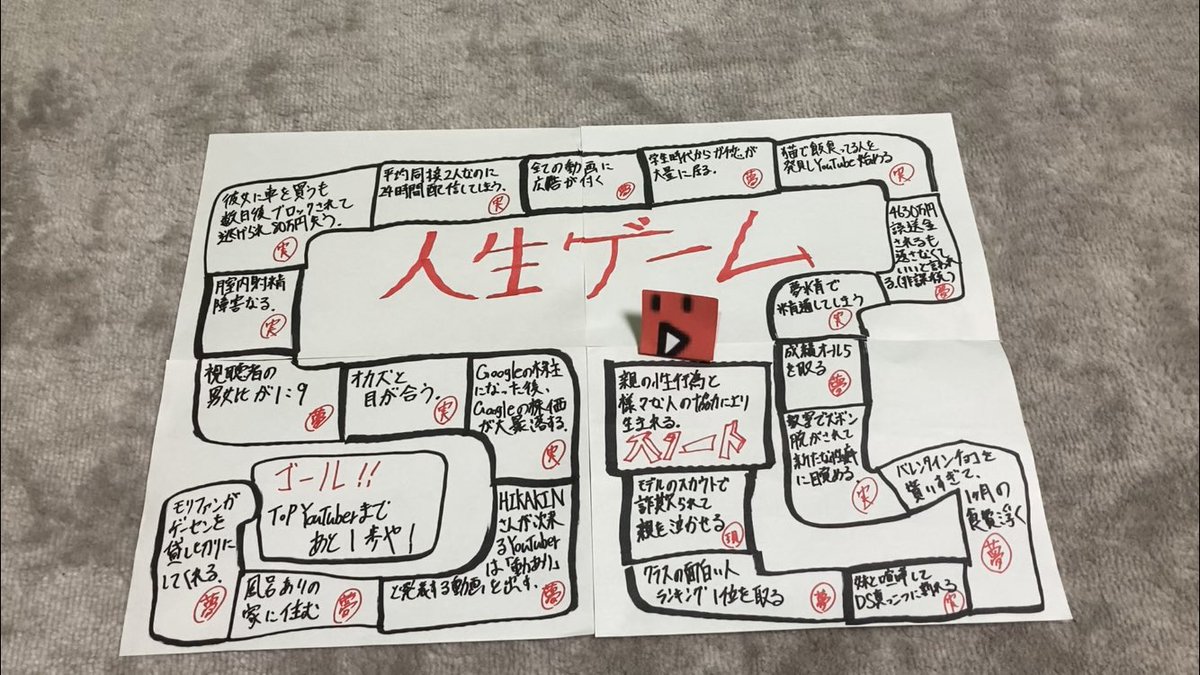 人生ゲーム
親の性行為と
様々な人の協力により
生まれる。
スタート
モデルのスカウトで
詐欺られて
親を泣かせる
現
クラスの面白い人
ランキング1位を取る
夢
妹と喧嘩して
DS真っ二つに
実
バレンタインチョコを
貰いすぎて、
1ヶ月の
食費浮く
夢
教室でズボン
脱がされて
新たな性癖
に目覚める。
実
成績オール5
を取る
夢
夢精で
精通してしまう
実
4630万円
誤送金
されるも
返さなくて
いいと言われ
る。(非課税)
夢
猫で飯食ってる人を
発見しYouTube始める
実
学生時代からガチ恋が
大量に居る。
夢
全ての動画に
広告が付く
夢
平均同接2人なのに
24時間配信してしまう。
実
彼女に車を買うも
数日後ブロックされて
逃げられ80万円失う。
実
膣内射精
障害なる。
実
視聴者の
男女比が1:9
夢
オカズと
目が合う。
実
Googleの株主
になった後、
Googleの株価
が大暴落する。
実
HIKAKIN
さんが次来
るYouTuber
は「動あり」
と発表する動画を出す。
夢
風呂ありの
家に住む
夢
モリファンが
ゲーセンを
貸し切りに
してくれる。
夢
ゴール!!
ToP YouTuberまで
あと1歩や!